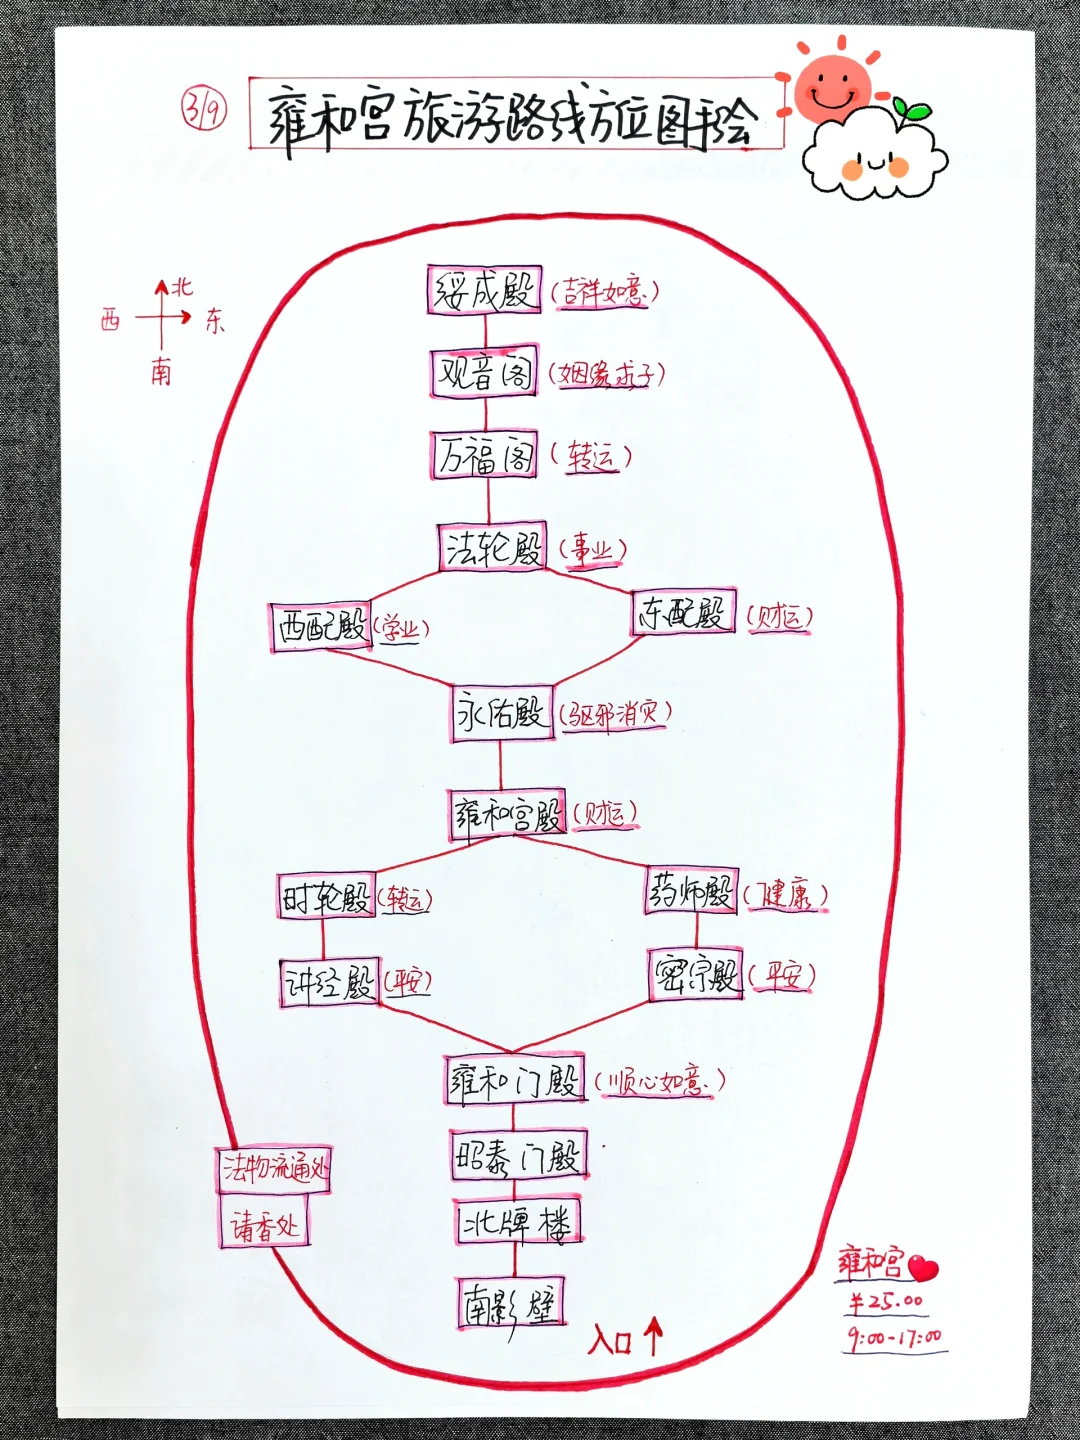 3/9
雍和宫旅游路线方位图手绘
北
西 东
南
绥成殿 (吉祥如意)
观音阁 (姻缘求子)
万福阁 (转运)
法轮殿 (事业)
西配殿 (学业)
东配殿 (财运)
永佑殿 (驱邪消灾)
雍和宫殿 (财运)
时轮殿 (转运)
药师殿 (健康)
讲经殿 (平安)
密宗殿 (平安)
雍和门殿 (顺心如意)
昭泰门殿
法物流通处
请香处
北牌楼
南影壁
入口
雍和宫
¥25.00
9:00-17:00